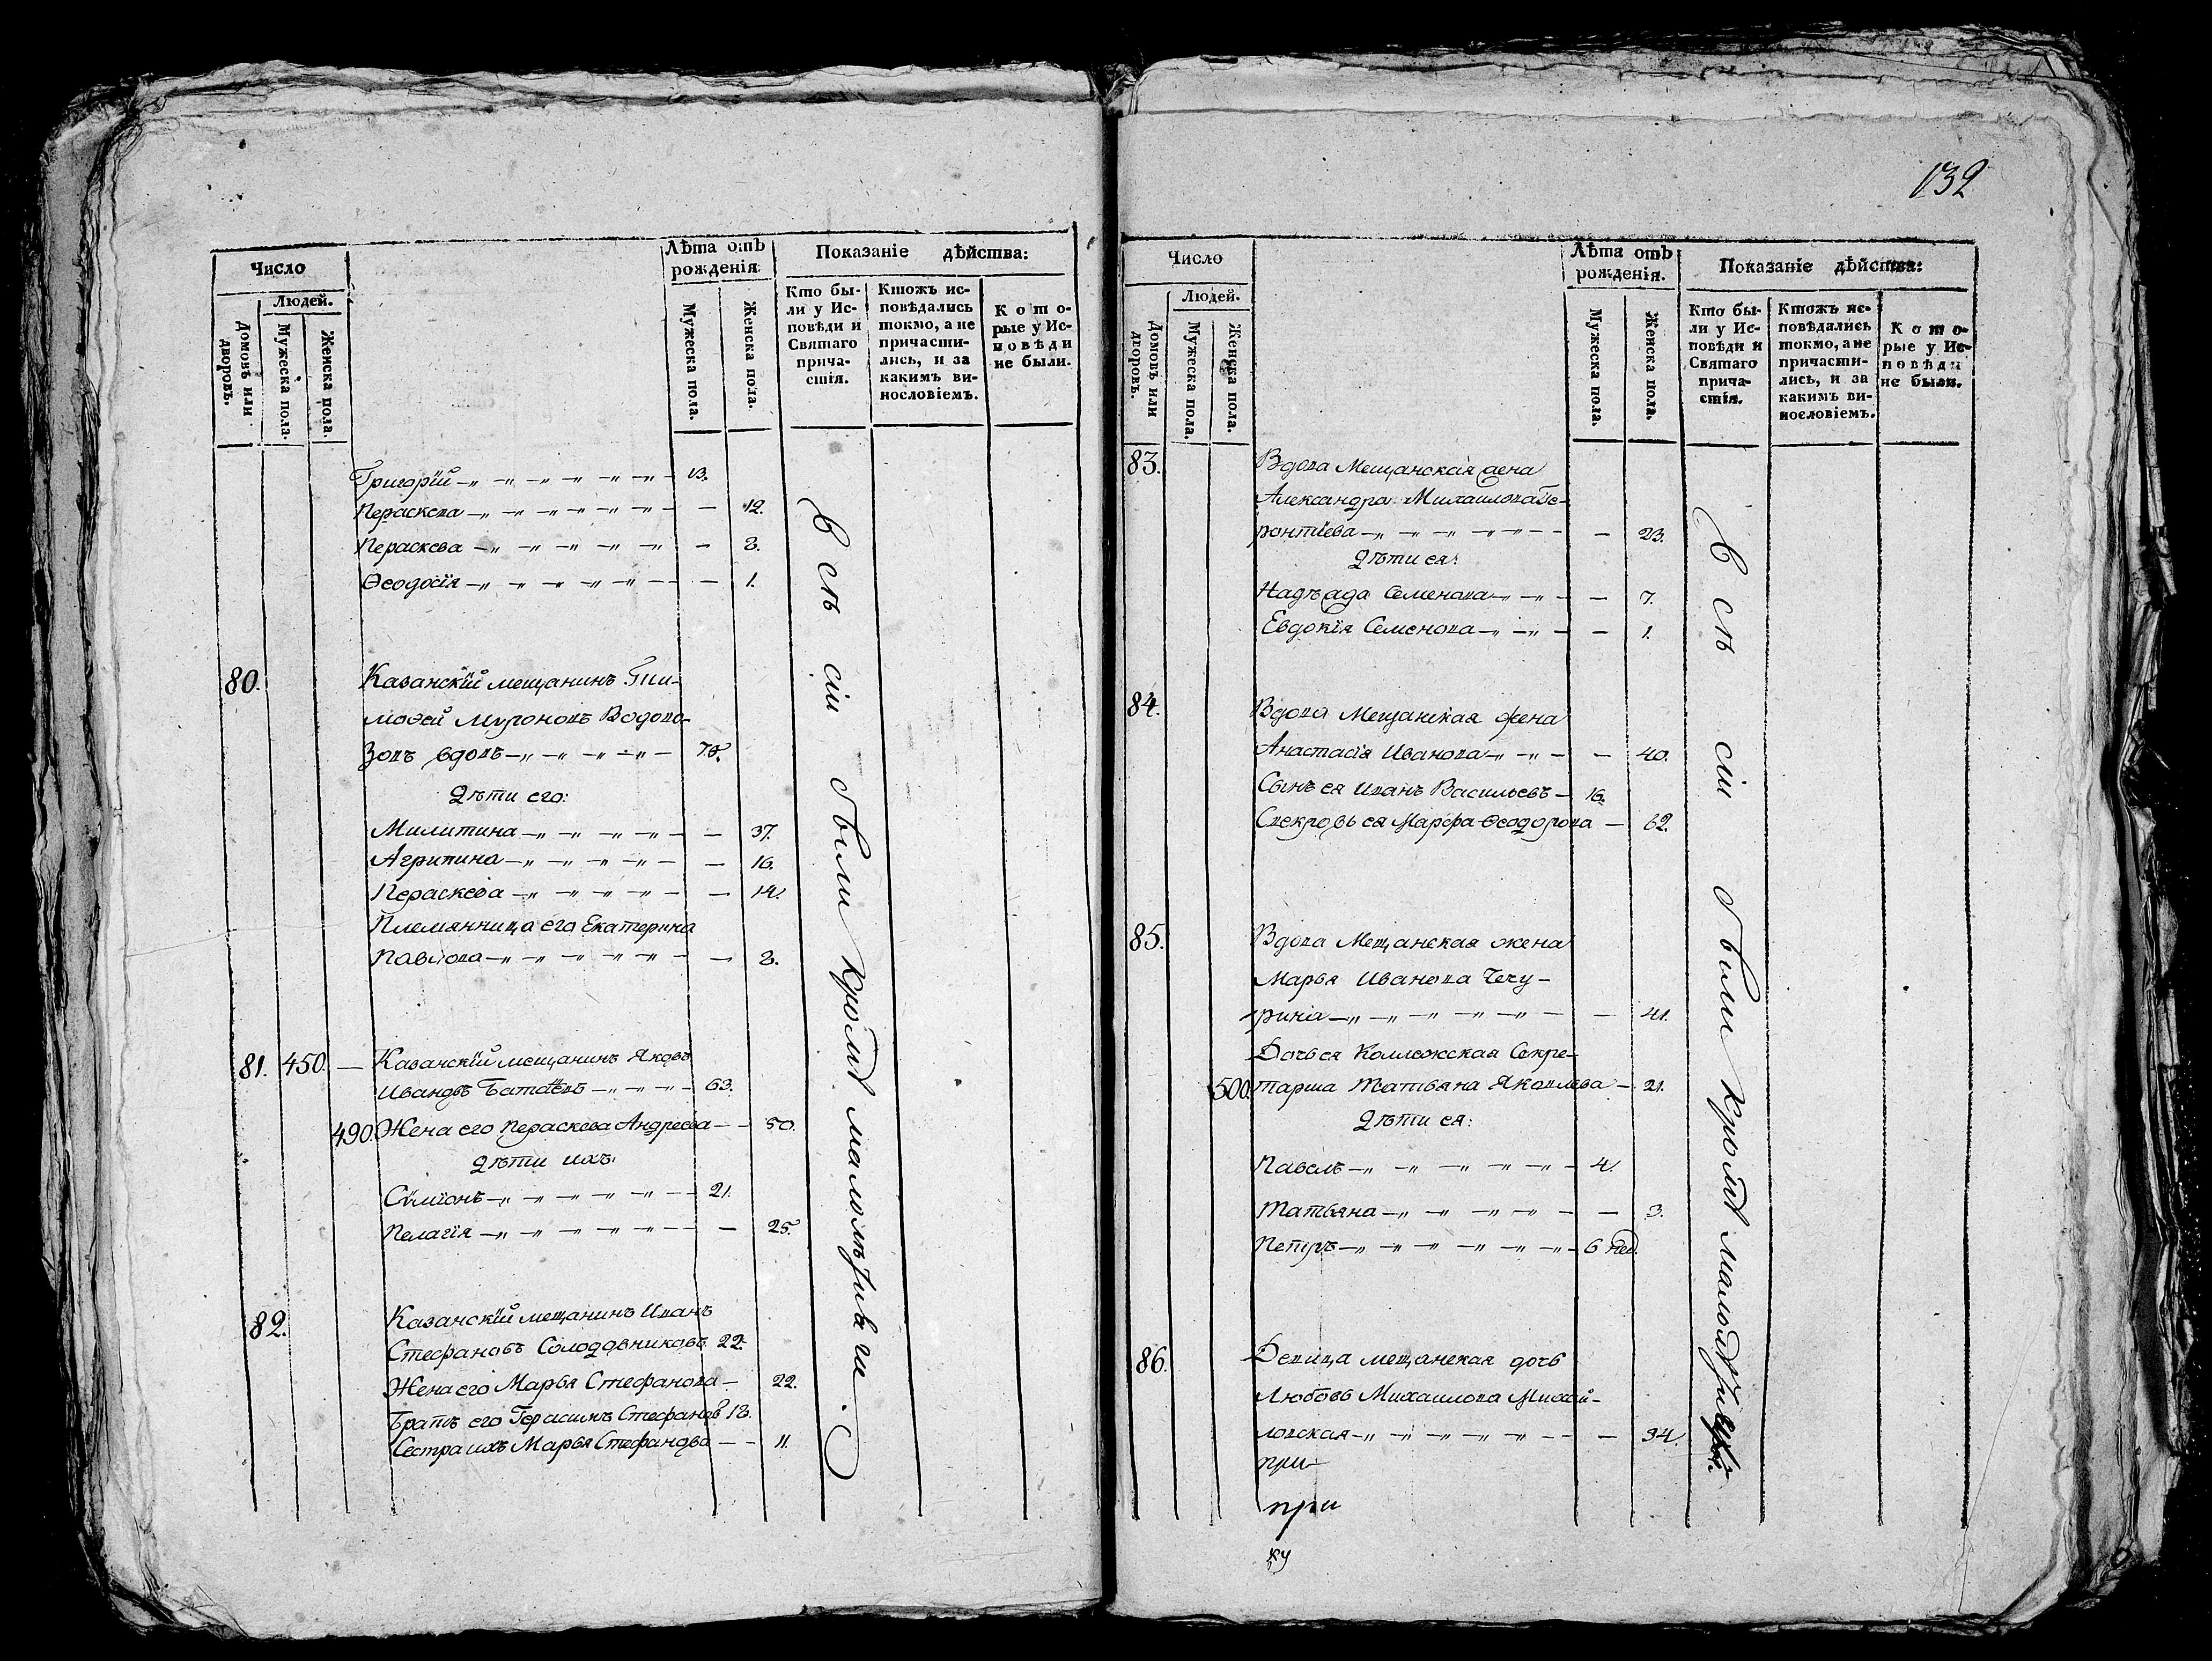 Число
Лѣта отъ рожденія.
Показаніе дѣйства:
Людей.
Домовъ или дворовъ.
Мужеска пола.
Женска пола.
Мужеска пола.
Женска пола.
Кто бы-
ли у Ис-
повѣди и
Святаго
прича-
стія.
Ктожъ ис-
повѣдались
токмо, а не
причасти-
лись, и за
какимъ ви-
нословіемъ.
Кото-
рые у Ис-
повѣди
не были.
Григорій 13.
Пераскева — 12.
Пераскева — 8.
Ѳеодосія — 1.
80. Казанскій мещанинъ Ти-
моѳей Мѵроновъ Водово-
зовъ вдовъ
Дѣти его:
Милитина — 37.
Агрипина — 16.
Пераскева — 14.
Племянница его Екатерина
Павлова — 8.
81. 450. — Казанскій мещанинъ Яковъ
Ивановъ 63.
490. Жена его Пераскева Андреева — 50.
Дѣти ихъ:
Сѵмѵонъ 21.
Пелагія — 25.
82. Казанскій мещанинъ Иванъ
Стефановъ Солодовниковъ 22.
Жена его Марья Стефанова — 22.
Братъ его Герасимъ Стефановъ 18.
Сестра ихъ Марья Стефанова — 11.
Всѣ сіи были кромѣ малолѣтнѣ
132
Число
Лѣта отъ рожденія.
Показаніе дѣйства:
Людей.
Домовъ или дворовъ.
Мужеска пола.
Женска пола.
Мужеска пола.
Женска пола.
Кто бы-
ли у Ис-
повѣди и
Святаго
прича-
стія.
Ктожъ ис-
повѣдались
токмо, а не
причасти-
лись, и за
какимъ ви-
нословіемъ.
Кото-
рые у Ис-
повѣди
не были.
83. Вдова Мещанская жена
Александра Михаилова Ге-
ронтіева — 23.
Дѣти ея:
Надѣжда Семенова — 7.
Евдокія Семенова — 1.
84. Вдова Мещанская жена
Анастасія Иванова — 40.
Сынъ ея Иванъ Васильевъ 16.
Свекровь ея Марѳа Ѳеодорова — 62.
85. Вдова Мещанская жена
Марья Иванова Чечу-
рина — 41.
Дочь ея Коллежская Секре-
500. тарша Татьяна Яковлева — 21.
Дѣти ея:
Павелъ 4.
Татьяна — 3.
Петръ 6 нед.
86. Девица мещанская дочь
Любовь Михаилова Михай-
ловская — 34.
при
при
Всѣ сіи были кромѣ